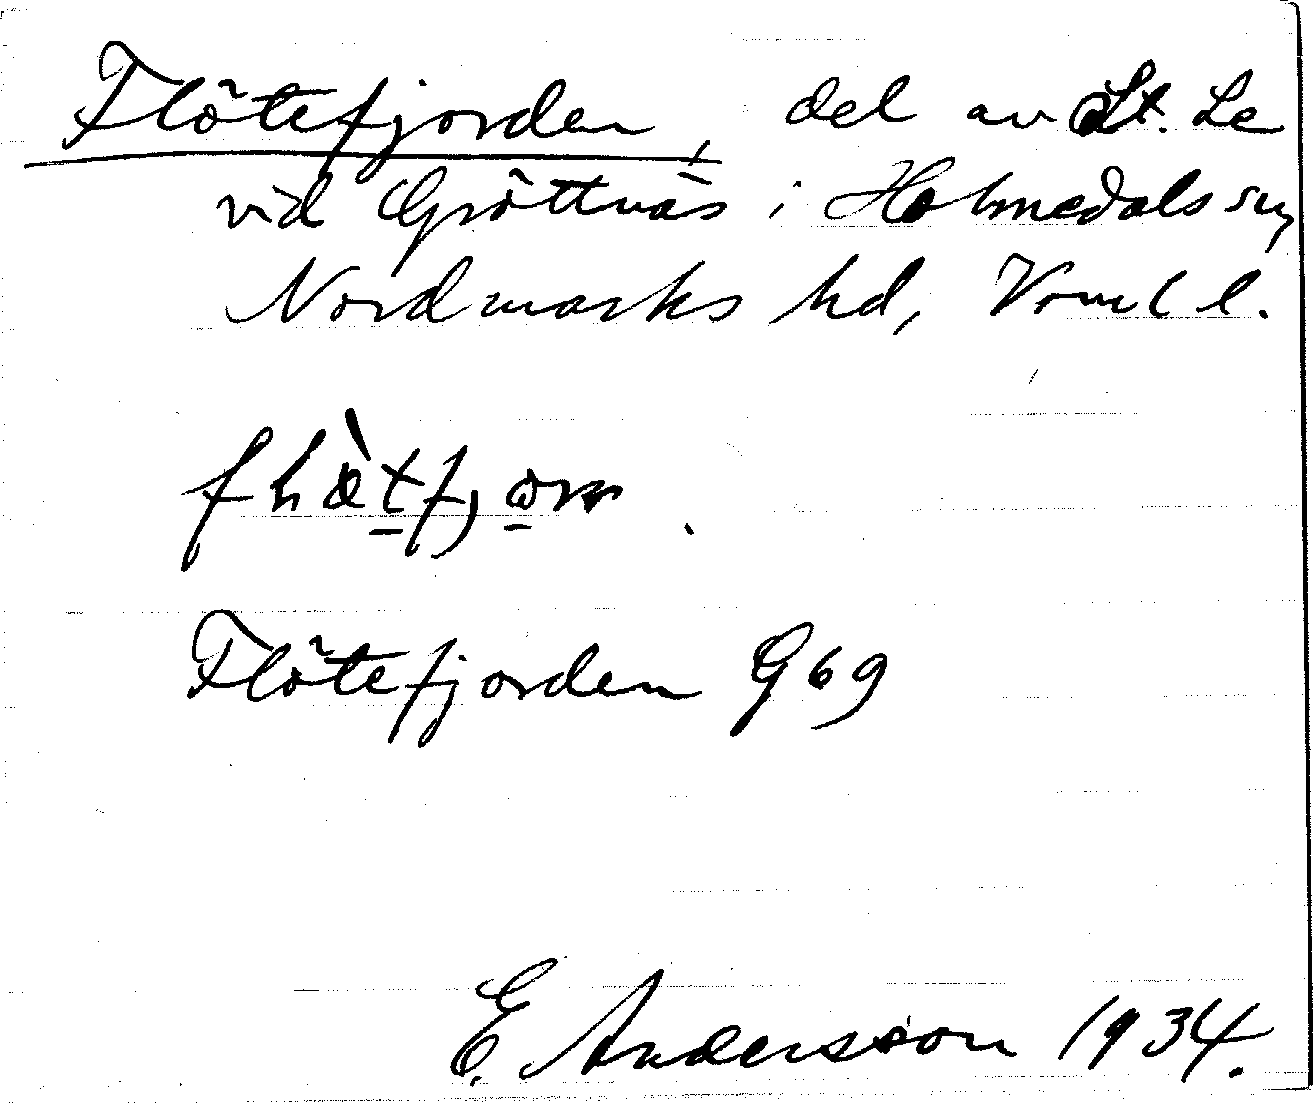 Flötefjorden, del av St. Le
vid Gröttnäs i Holmedals sn,
Nordmarks hd, Vrml l.
Flötefjorden G 69
E. Andersson 1934.